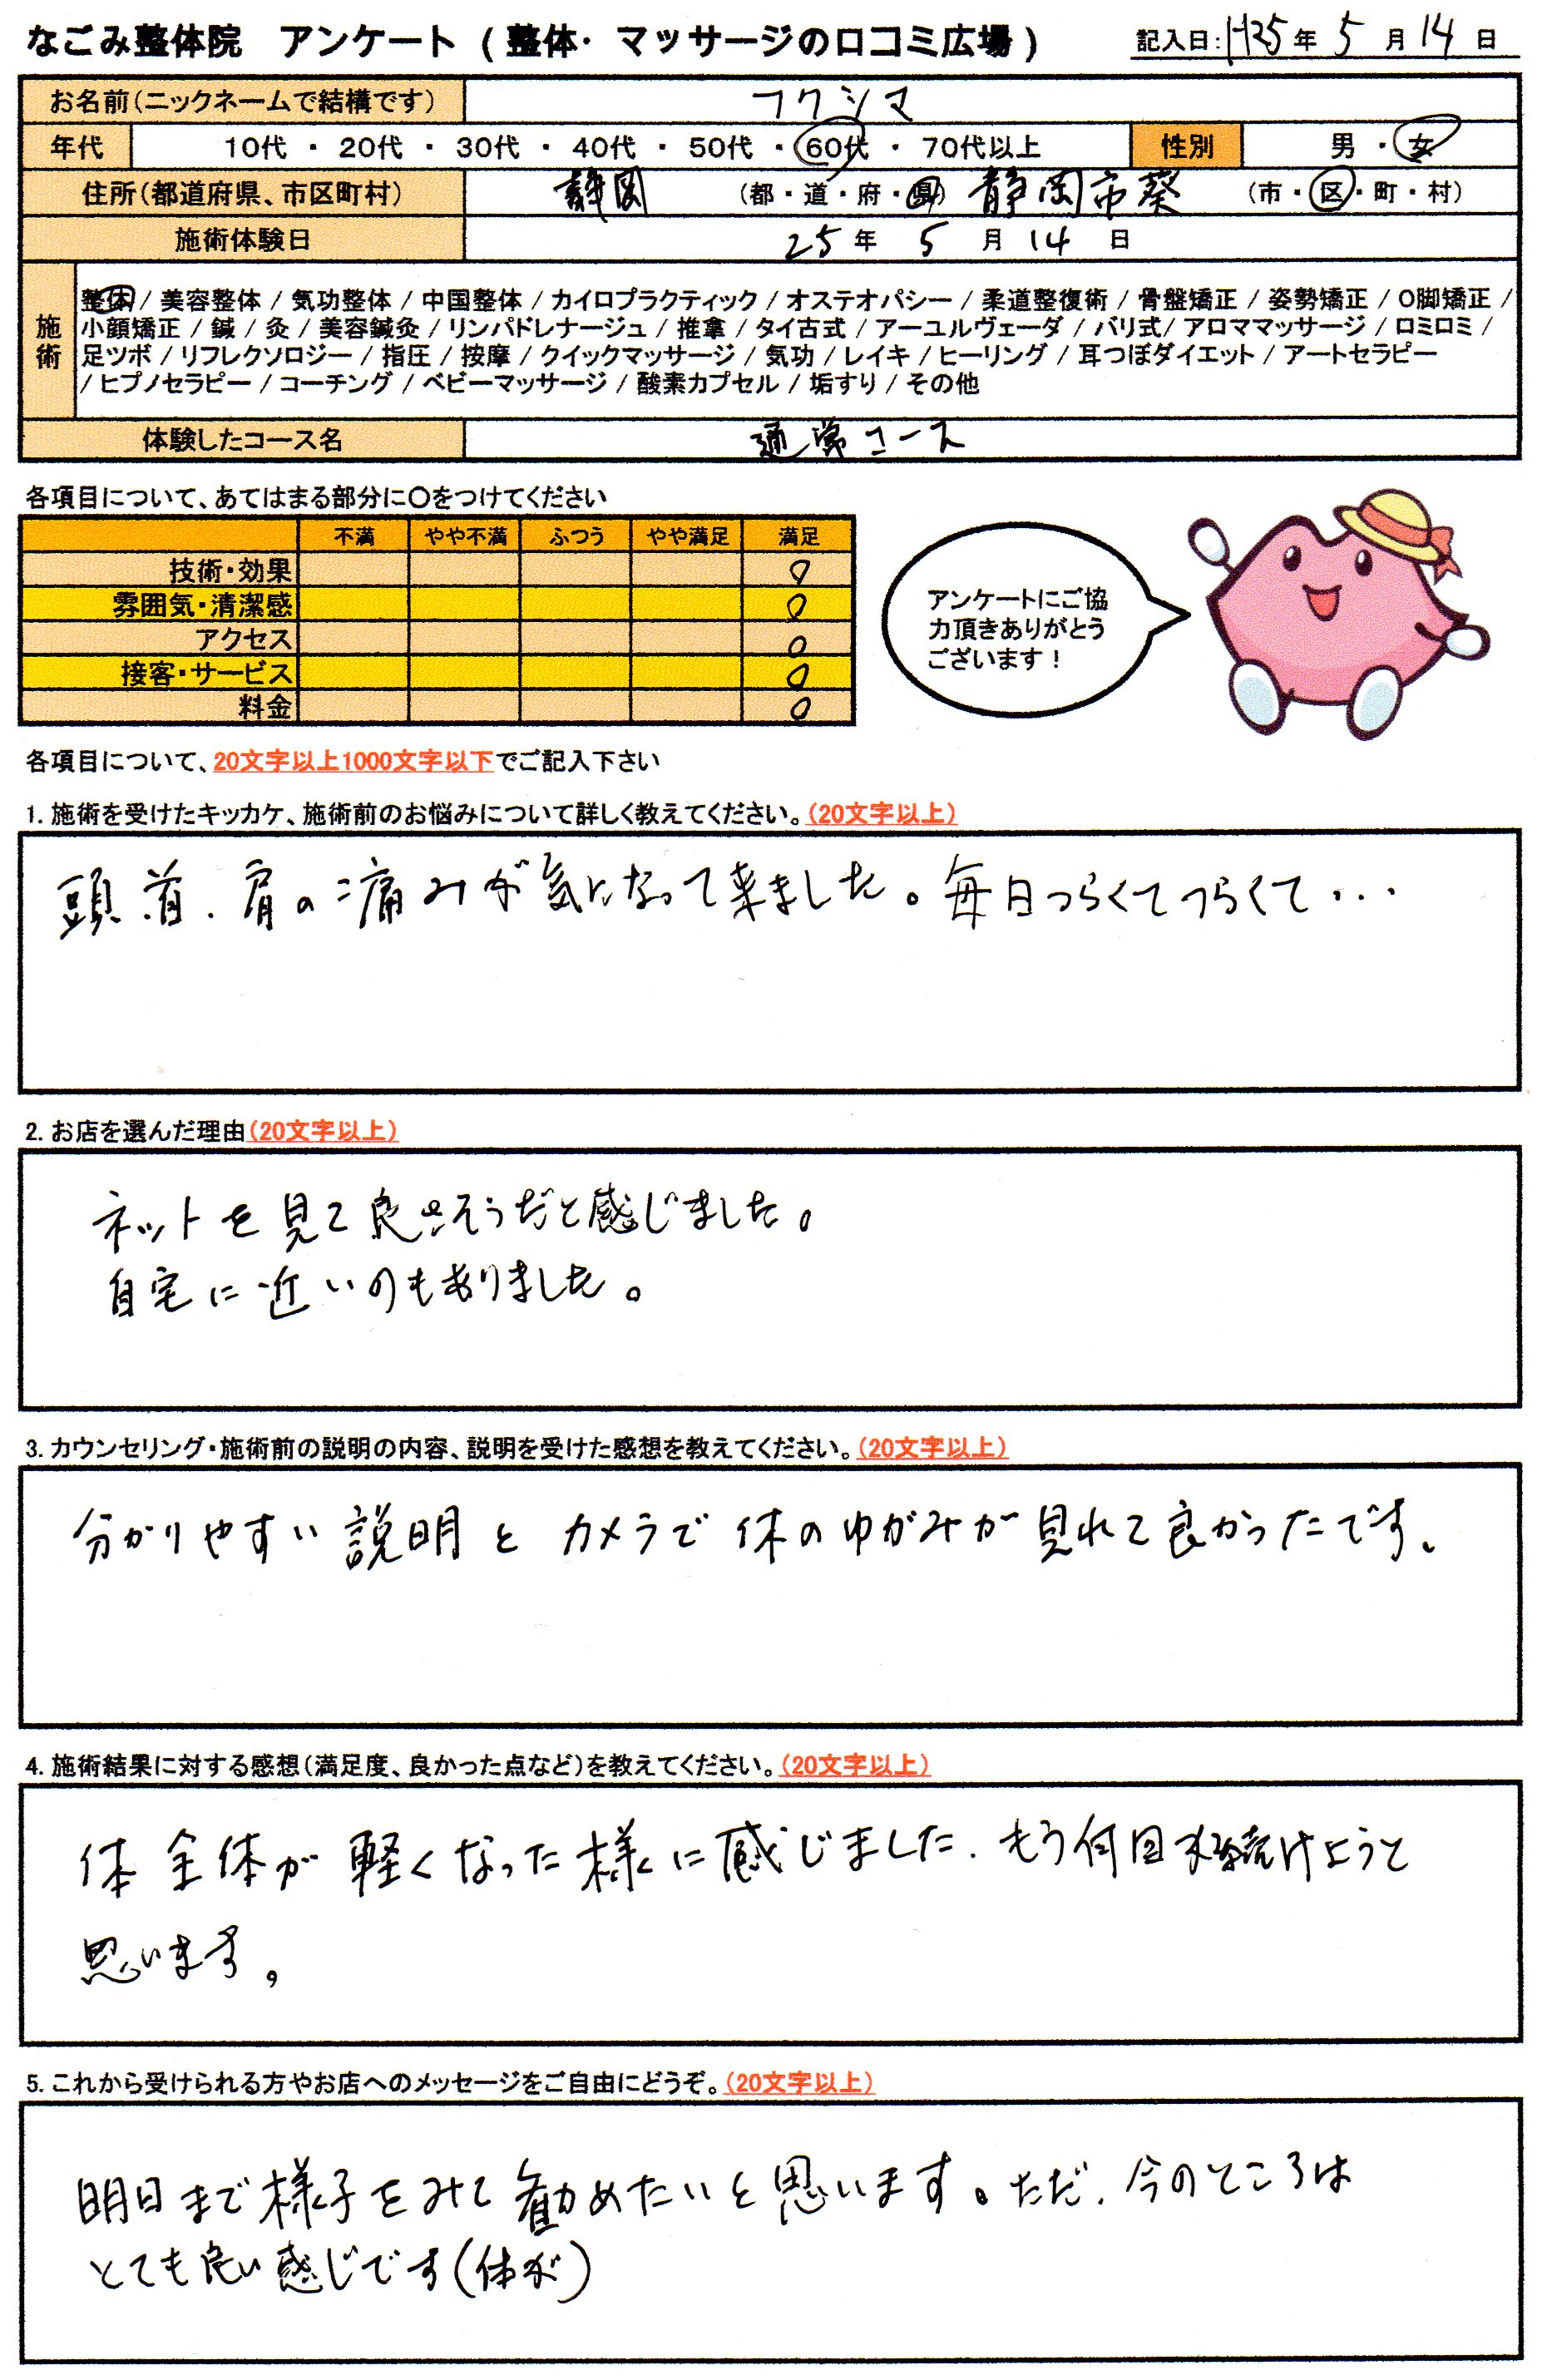 なごみ整体院 アンケート (整体・マッサージの口コミ広場) 記入日:H25年5月14日
お名前(ニックネームで結構です) フクシマ
年代 10代 ・ 20代 ・ 30代 ・ 40代 ・ 50代 ・ 60代 ・ 70代以上 性別 男 ・ 女
住所(都道府県、市区町村) 静岡 (都・道・府・県) 静岡市葵 (市・区・町・村)
施術体験日 25年 5月 14日
施術
整体 / 美容整体 / 気功整体 / 中国整体 / カイロプラクティック / オステオパシー / 柔道整復術 / 骨盤矯正 / 姿勢矯正 / O脚矯正 /
小顔矯正 / 鍼 / 灸 / 美容鍼灸 / リンパドレナージュ / 推拿 / タイ古式 / アーユルヴェーダ / バリ式/ アロママッサージ / ロミロミ /
足ツボ / リフレクソロジー / 指圧 / 按摩 / クイックマッサージ / 気功 / レイキ / ヒーリング / 耳つぼダイエット / アートセラピー
/ ヒプノセラピー / コーチング / ベビーマッサージ / 酸素カプセル / 垢すり / その他
体験したコース名 通常コース
各項目について、あてはまる部分に○をつけてください
不満 やや不満 ふつう やや満足 満足
技術・効果 ○
雰囲気・清潔感 ○
アクセス ○
接客・サービス ○
料金 ○
アンケートにご協
力頂きありがとう
ございます!
各項目について、20文字以上1000文字以下でご記入下さい
1. 施術を受けたキッカケ、施術前のお悩みについて詳しく教えてください。(20文字以上)
頭、首、肩の痛みが気になって来ました。毎日つらくてつらくて・・・
2. お店を選んだ理由(20文字以上)
ネットを見て良さそうだと感じました。
自宅に近いのもありました。
3. カウンセリング・施術前の説明の内容、説明を受けた感想を教えてください。(20文字以上)
分かりやすい説明とカメラで体のゆがみが見れて良かったです。
4. 施術結果に対する感想(満足度、良かった点など)を教えてください。(20文字以上)
体全体が軽くなった様に感じました。もう何回か続けようと
思います。
5. これから受けられる方やお店へのメッセージをご自由にどうぞ。(20文字以上)
明日まで様子をみて勧めたいと思います。ただ、今のところは
とても良い感じです(体が)